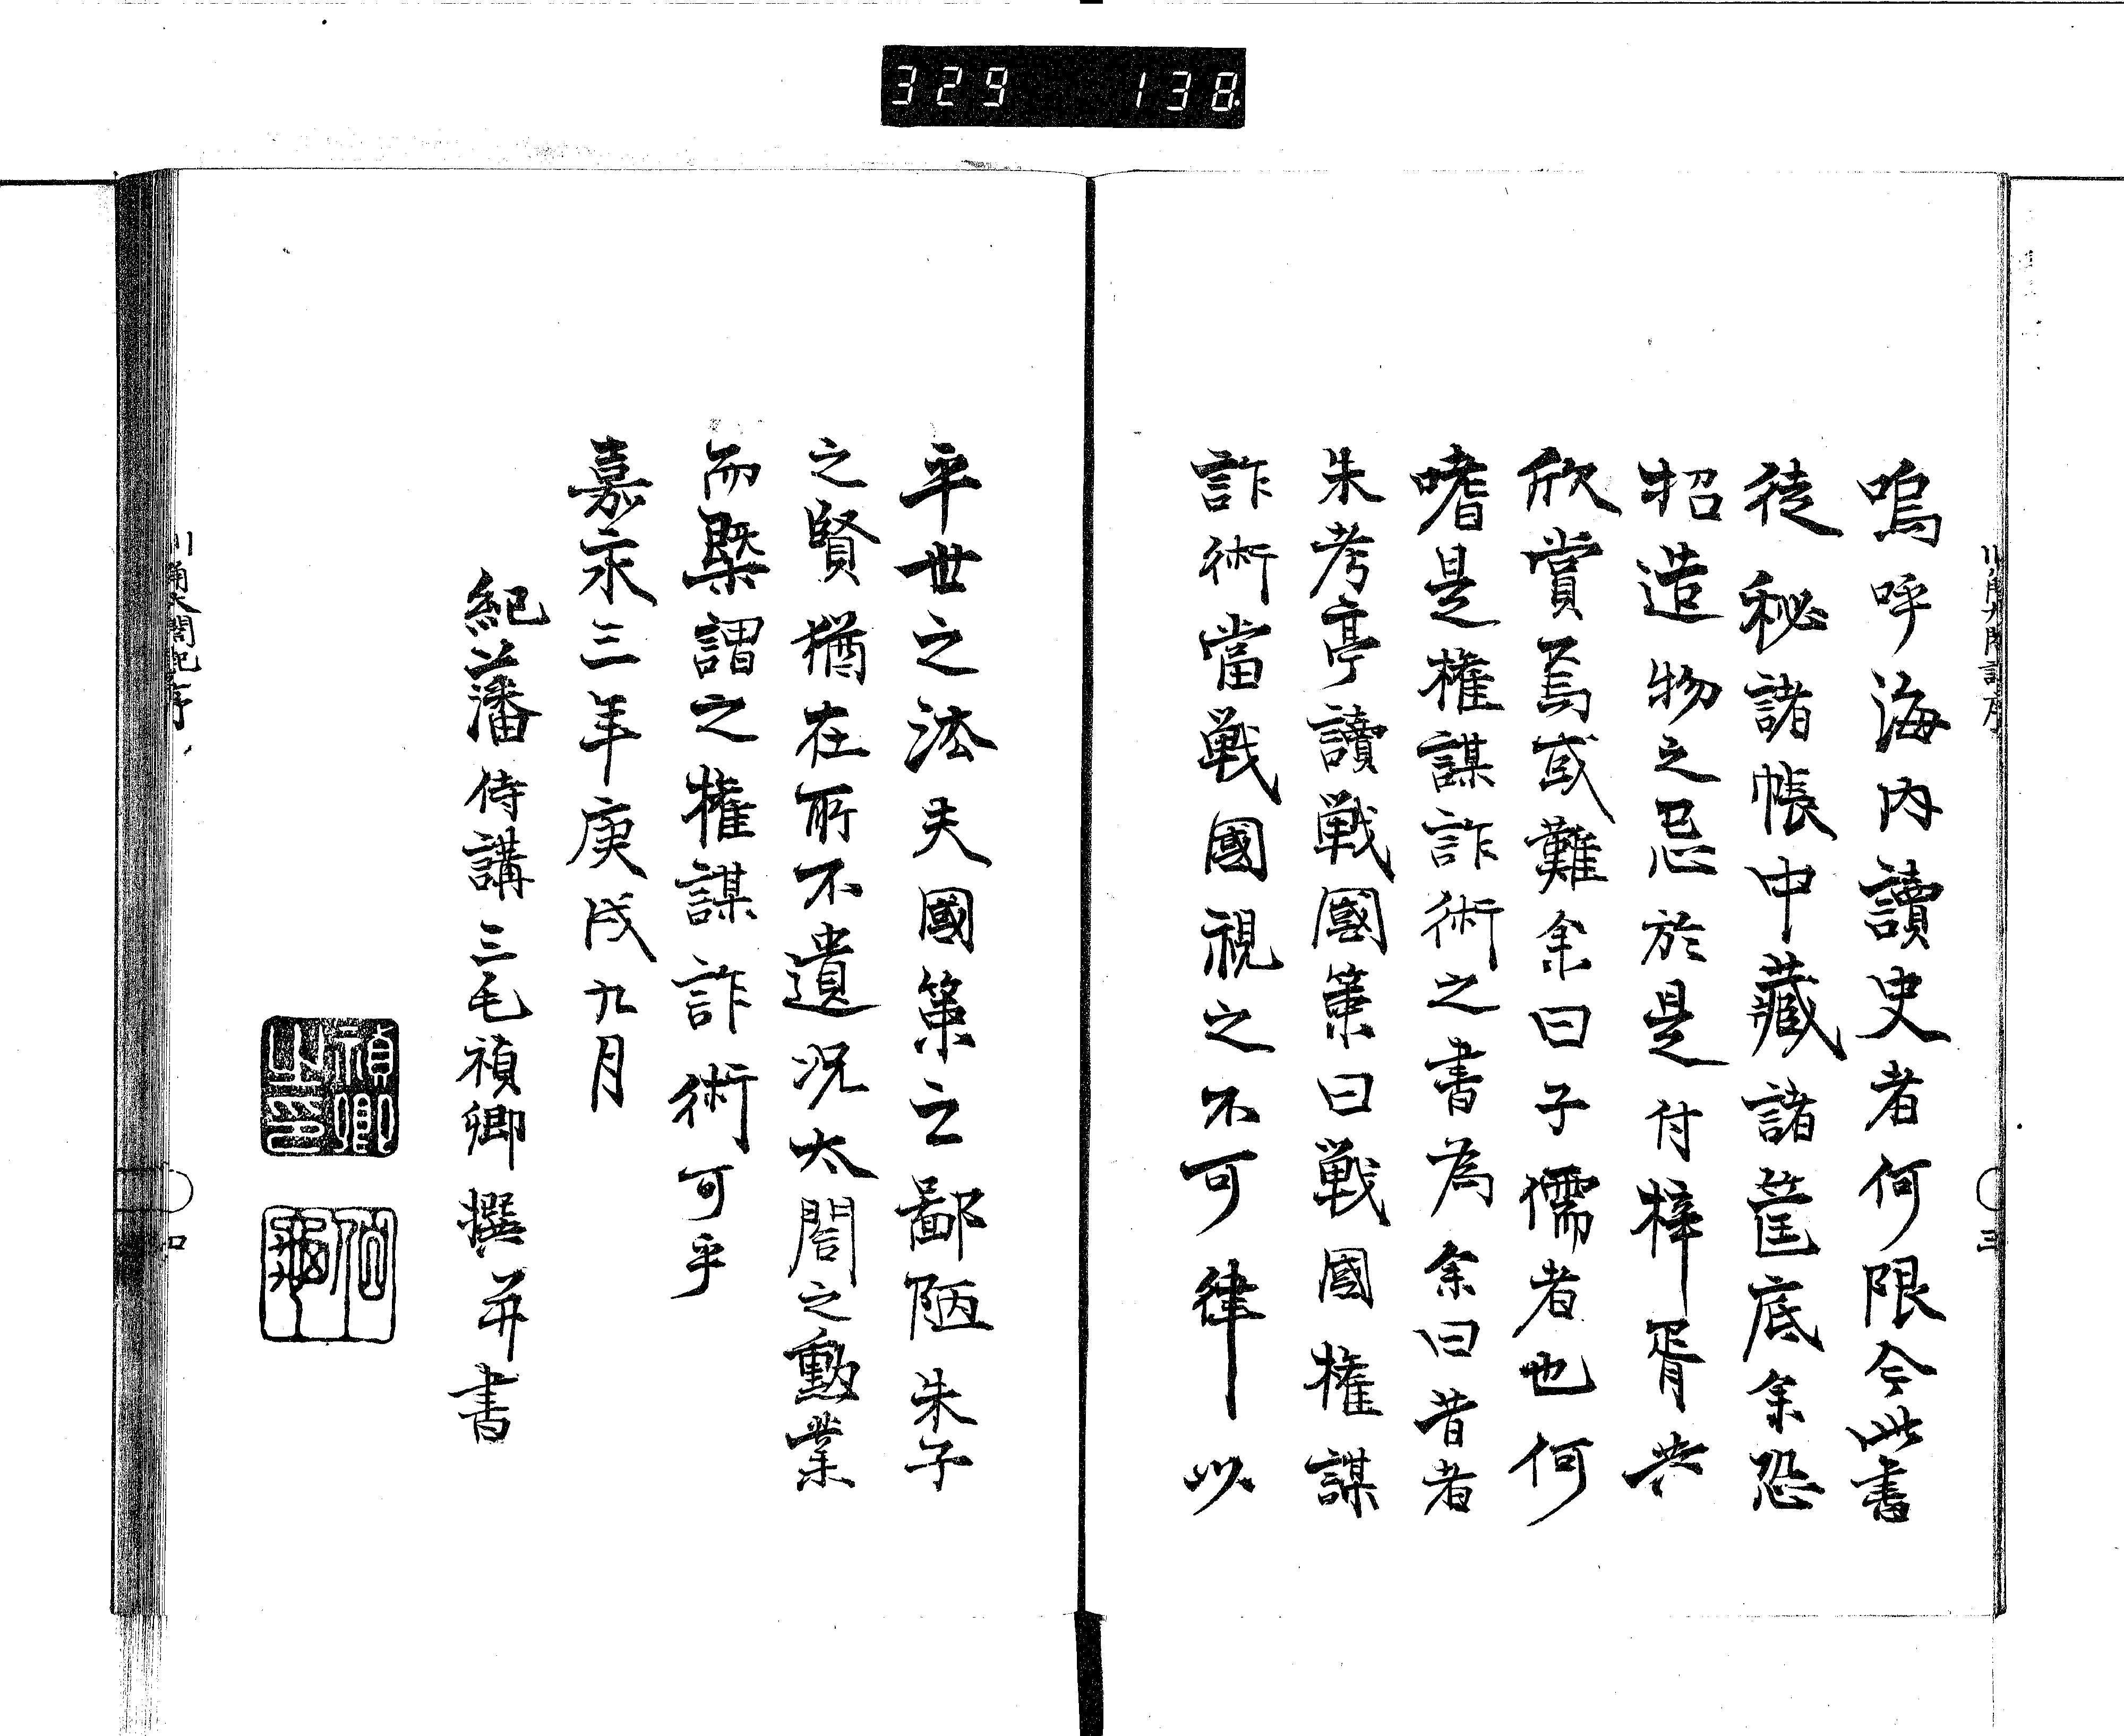 329 138
嗚呼海内讀史者何限今此書
徒秘諸帳中藏諸筐底余恐
招造物之忌於是付梓胥共
欣賞焉或難余曰子儒者也何
嗜是權謀詐術之書為余曰昔者
朱考亭讀戰國策曰戰國權謀
詐術當戰國視之不可律以
平世之法夫國策之鄙陋朱子
之賢猶在所不遺况太閤之勳業
而槩謂之權謀詐術可乎
嘉永三年庚戌九月
紀藩侍講三毛禎卿撰并書
禎卿之印
三
四